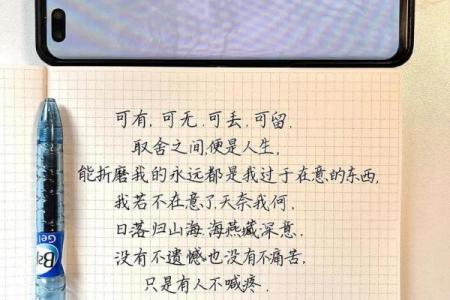 可有,可无,可丢,可留,
取舍之间,便是人生,
能折磨我的永远都是我过于在意的东西,
我若不在意了,天奈我何.
日落归山海,海燕藏深意.
没有不遗憾也没有不痛苦,
只是有人不喊疼.
Gel